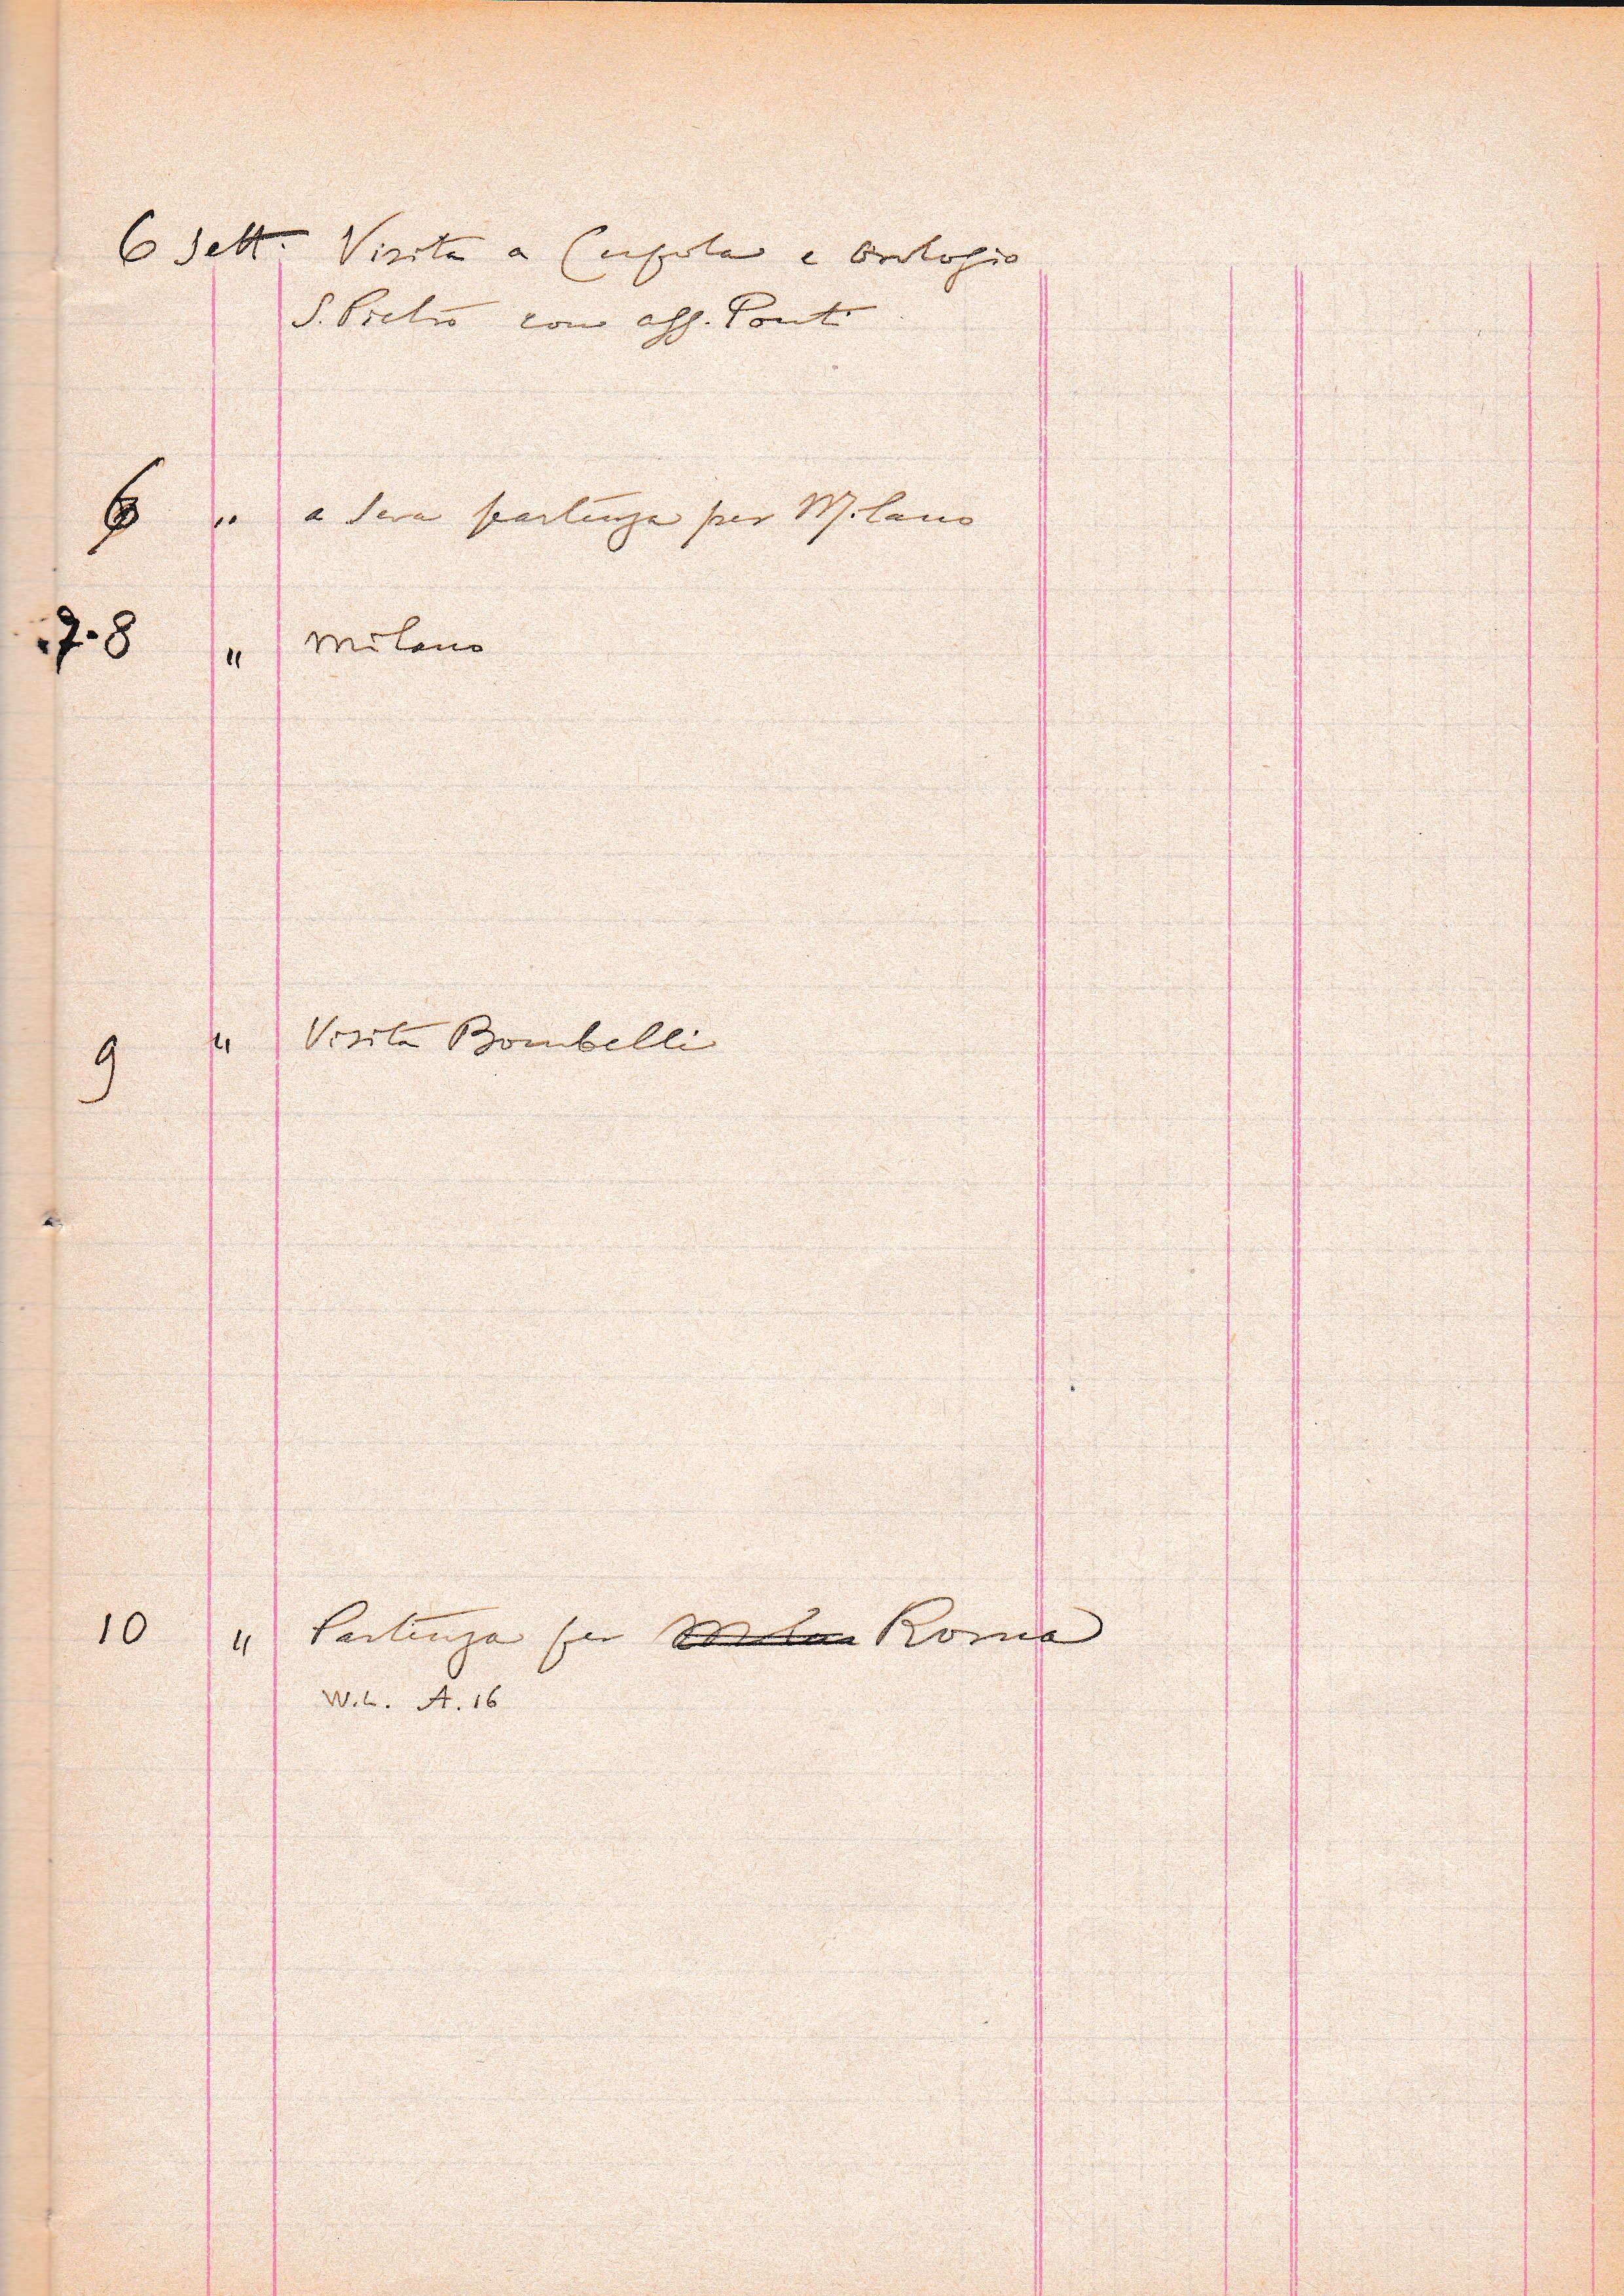 6 Sett. Visita a Cupola e Orologio
S. Pietro con agg. Ponti
6 " a sera partenza per Milano
7-8 " Milano
9 " Visita Bombelli
10 " Partenza per Milano Roma
W.L. A. 16